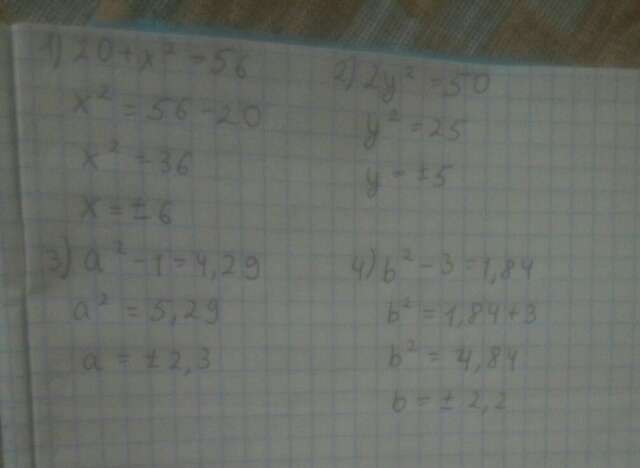 1) 20+x² = 56
x² = 56 - 20
x² = 36
x = ± 6
2) 2y² = 50
y² = 25
y = ±5
3) a² - 1 = 4,29
a² = 5,29
a = ± 2,3
4) b² - 3 = 1,84
b² = 1,84+3
b² = 4,84
b = ± 2,2